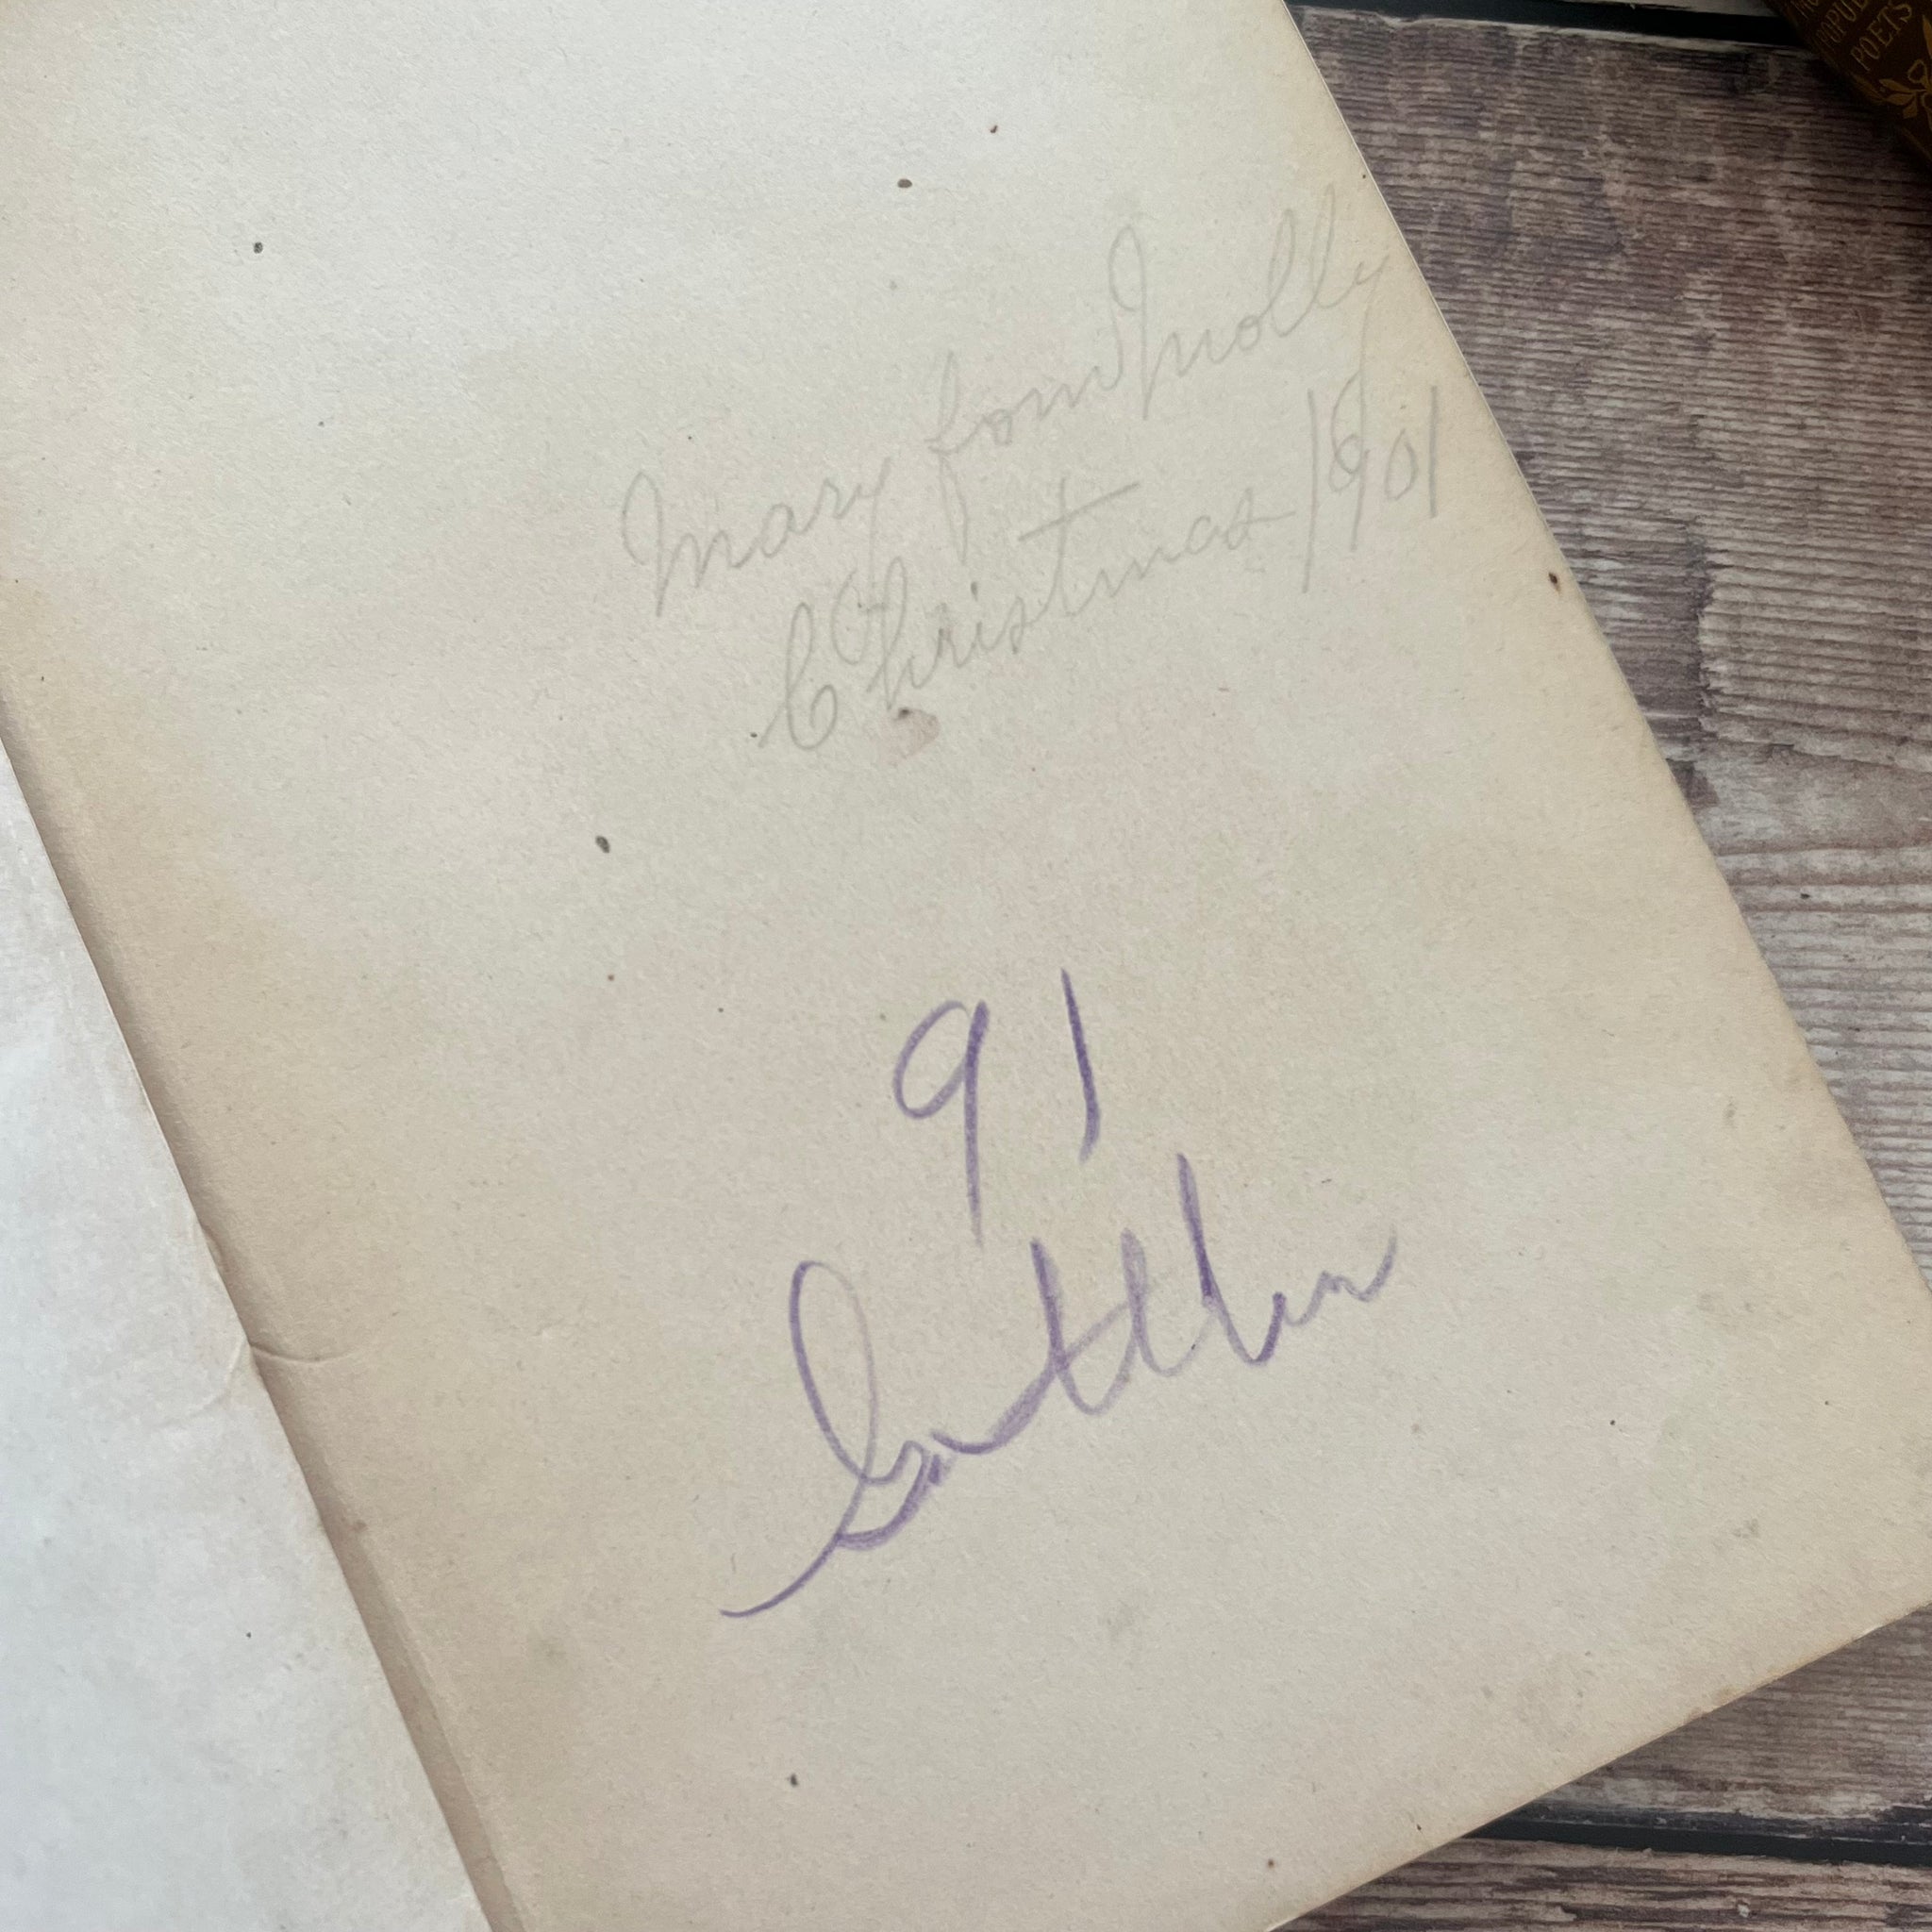 POPULAR
POETS
Mary from Molly
Christmas 1901
91